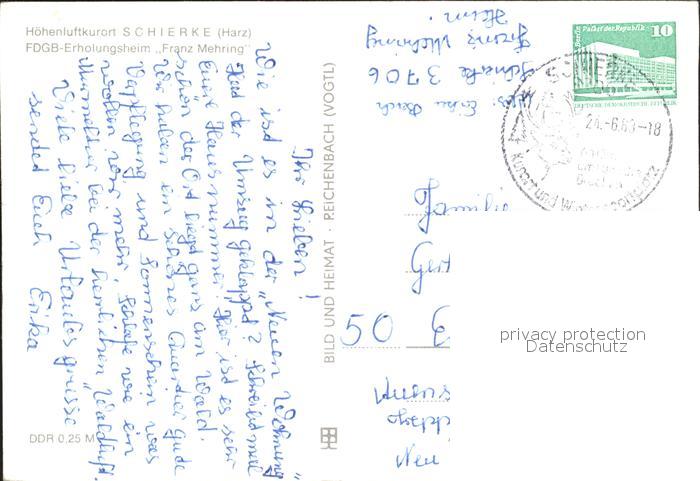 Höhenluftkurort SCHIERKE (Harz)
FDGB-Erholungsheim „Franz Mehring"
Ihr Lieben!
Wie ist es in der „Neuen Wohnung"
Hat der Umzug geklappt? Schreibt mal
Eure Hausnummer! Hier ist es sehr
schön der Ort liegt ganz am Wald.
Wir haben ein schönes Quartier gute
Verpflegung und Sonnenschein was
wollen wir mehr, schlafe wie ein
Murmeltier bei der herrlichen Waldluft.
Viele liebe Urlaubsgrüsse
sendet Euch Erika
DDR 0,25 M
BILD UND HEIMAT · REICHENBACH (VOGTL)
Erika
Schierke 3706
Franz Mehring
Heim.
Berlin Palast der Republik
10
DEUTSCHE DEMOKRATISCHE REPUBLIK
24.-6.83-18
Kurort und Wintersportplatz
50
privacy protection
Datenschutz